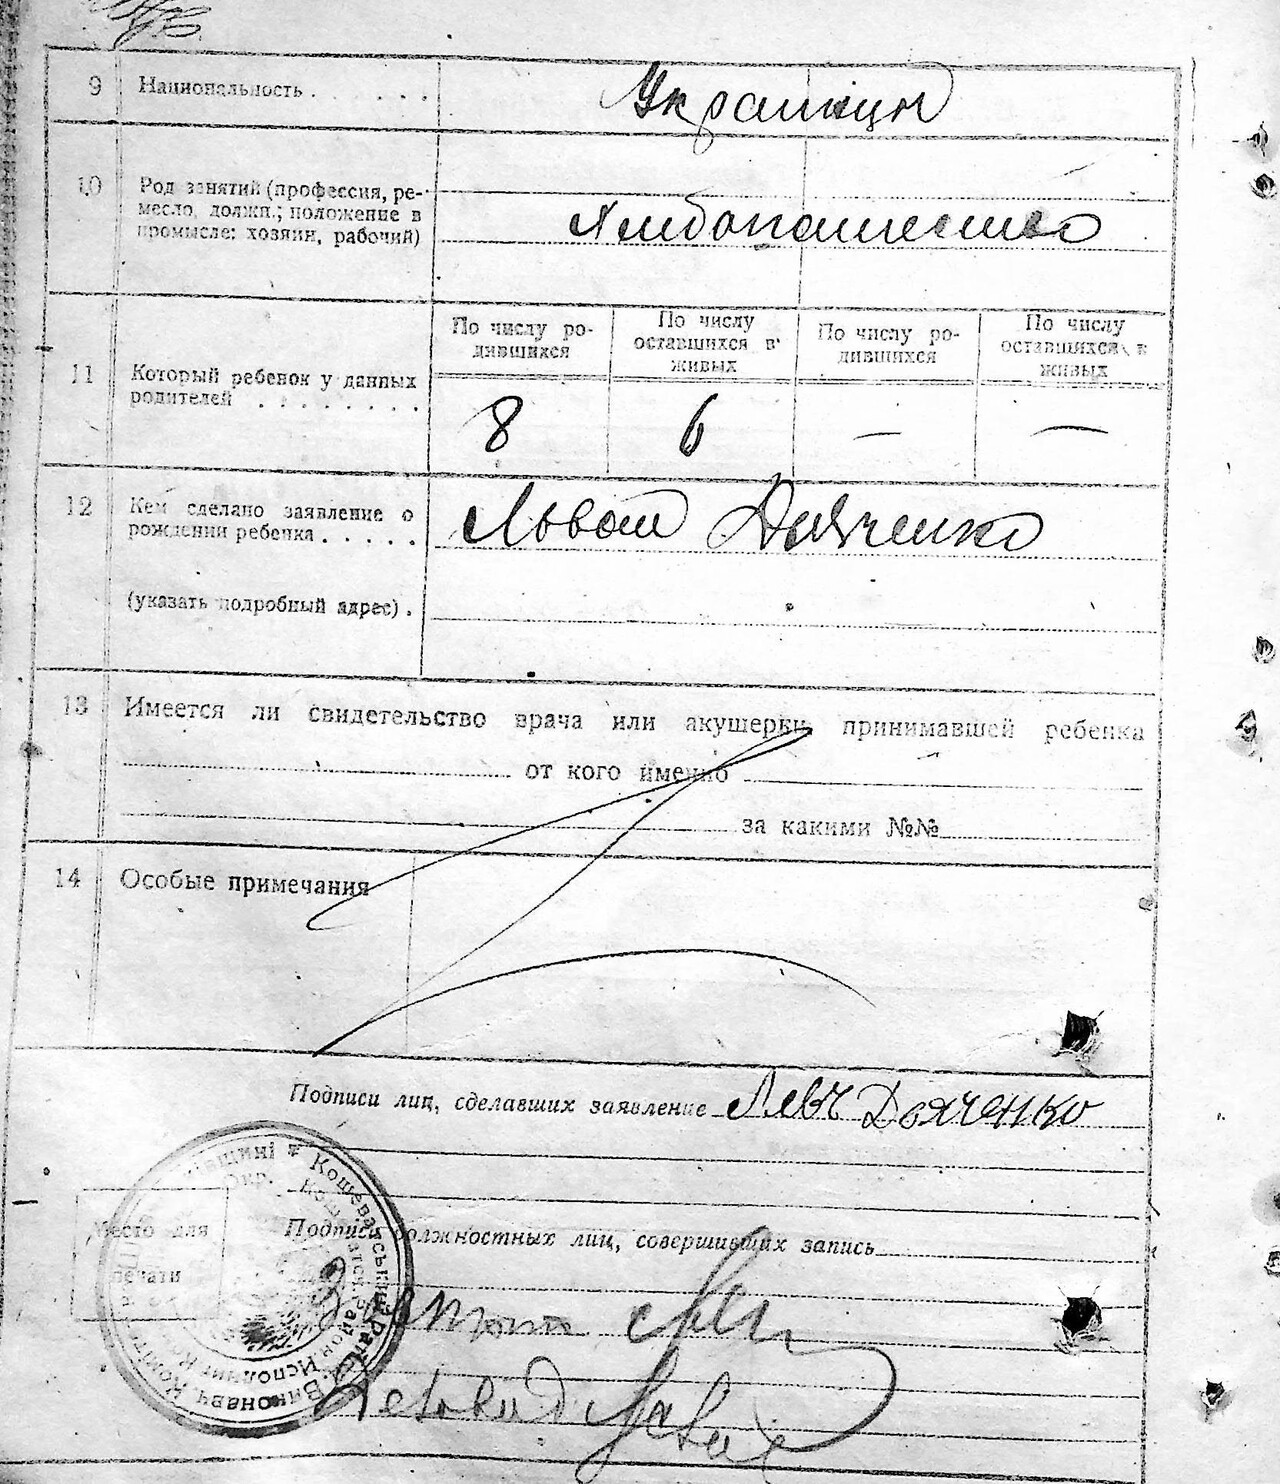 9 Национальность . . . . . . Украинцы
10 Род занятий (профессия, ре-
месло, должн.; положение в
промысле: хозяин, рабочий)
Хлебопашество
11 Который ребенок у данных
родителей . . . . . . . .
По числу ро-
дившихся
По числу
оставшихся в
живых
По числу ро-
дившихся
По числу
оставшихся в
живых
8 6 — —
12 Кем сделано заявление о
рождении ребенка . . . . .
Львом Дияченко
(указать подробный адрес) .
13 Имеется ли свидетельство врача или акушерки, принимавшей ребенка
от кого именно
за какими №№
14 Особые примечания
Подписи лиц, сделавших заявление Левъ Дьяченко
Место для
печати
Подписи должностных лиц, совершивших запись
Кошеватський Район. Виконавч. Коміт.
Район. Исполнит. Ком.